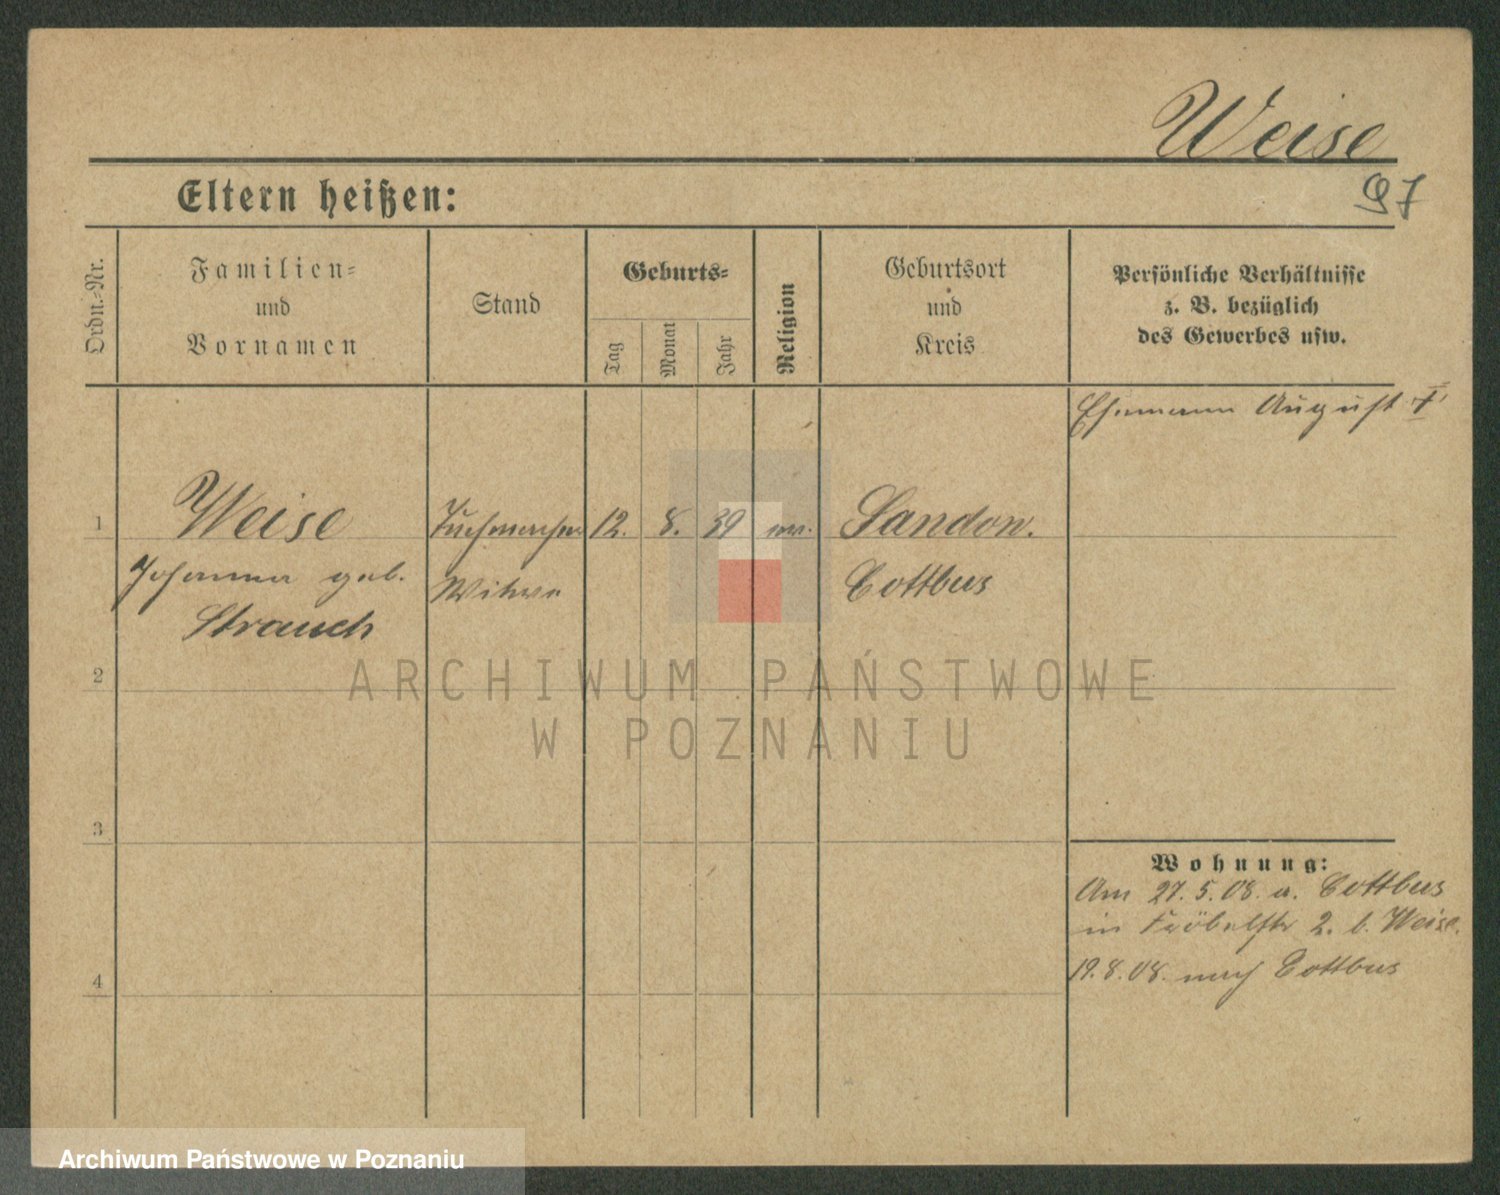 Weise
97
Eltern heißen:
Ordn.-Nr.
Familien-
und
Vornamen
Stand
Geburts-
Tag
Monat
Jahr
Religion
Geburtsort
und
Kreis
Persönliche Verhältnisse
z. B. bezüglich
des Gewerbes usw.
Ehemann August †
1 Weise Tuchmacher 12. 8. 39 ev. Sandow.
Johanna geb. Witwe Cottbus
Strauch
2
3
Wohnung:
Am 27.5.08. a. Cottbus
in Fröbelstr 2. b. Weise.
19.8.08. nach Cottbus
4
ARCHIWUM PAŃSTWOWE
W POZNANIU
Archiwum Państwowe w Poznaniu